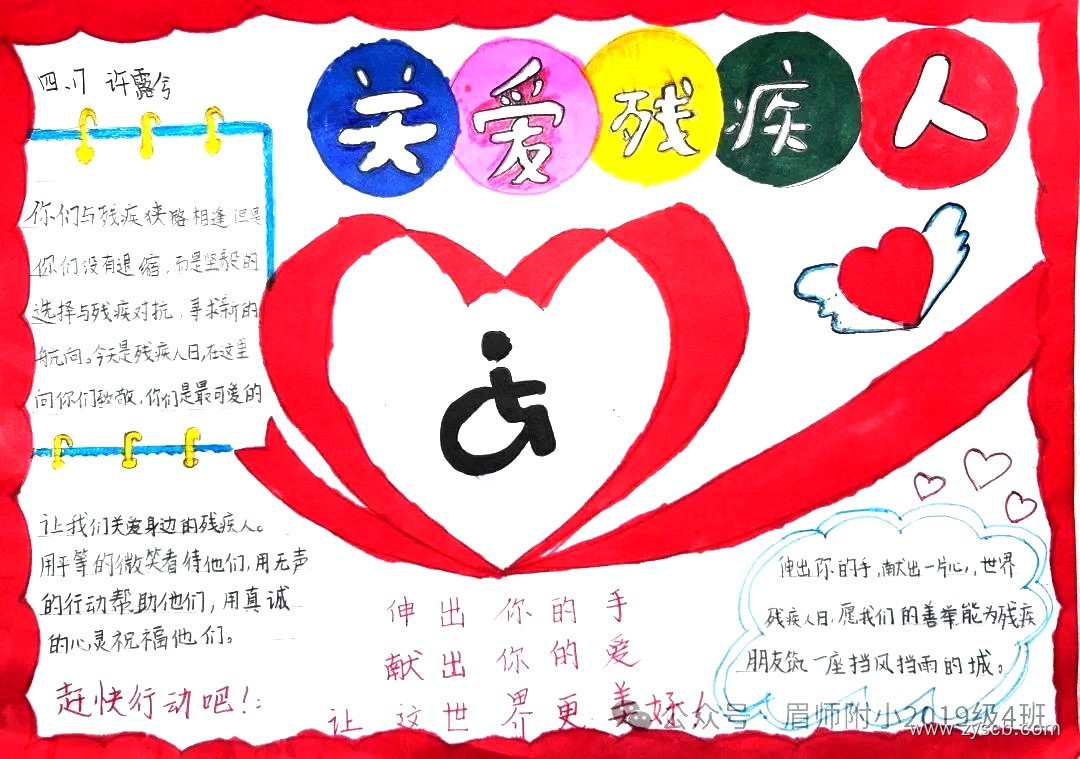 关爱残疾人
四.17 许露兮
你们与残疾侠略相逢但是
你们没有退缩,而是坚毅的
选择与残疾对抗,寻求新的
航向。今天是残疾人日,在这里
向你们致敬,你们是最可爱的
让我们关爱身边的残疾人。
用平等的微笑看待他们,用无声
的行动帮助他们,用真诚
的心灵祝福他们。
赶快行动吧!:
伸出你的手
献出你的爱
让这世界更美好
伸出你的手,献出一片心,世界
残疾人日,愿我们的善举能为残疾
朋友筑一座挡风挡雨的城。
公众号·眉师附小2019级4班
www.zyscb.com